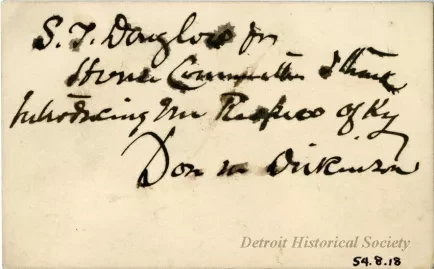 S. T. Douglass Jr
Home Committee I think
Introducing Mr of Ky
Don M Dickinson
Detroit Historical Society
54.8.18